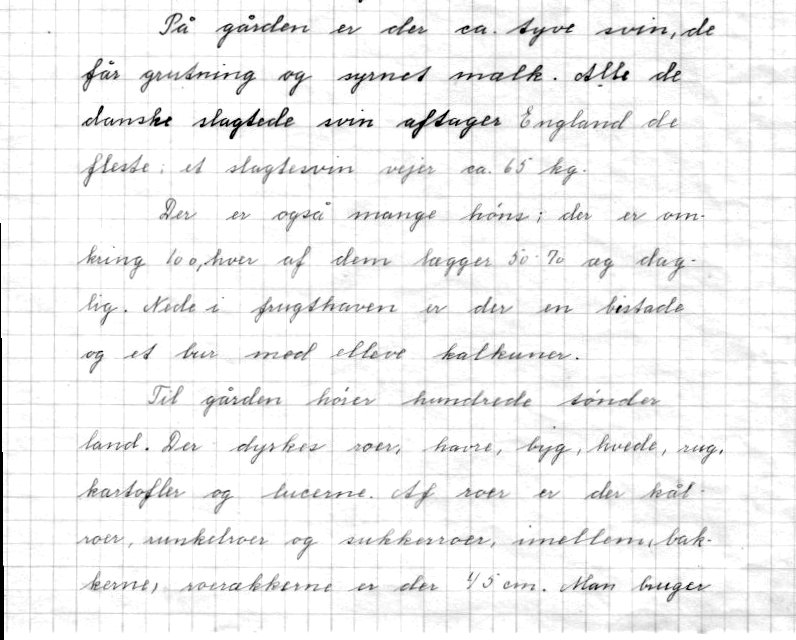 På gården er der ca. tyve svin, de
får grutning og syrnet mælk. Alle de
danske slagtede svin aftager England de
fleste; et slagtesvin vejer ca. 65 kg.
Der er også mange höns; der er om-
kring 100, hver af dem lægger 50-70 æg dag-
lig. Nede i frugthaven er der en bistade
og et bur med elleve kalkuner.
Til gården hörer hundrede tönder
land. Der dyrkes roer, havre, byg, hvede, rug,
kartofler og lucerne. Af roer er der kål-
roer, runkelroer og sukkerroer, imellem, bak-
kerne, roerækkerne er der 45 cm. Man bruger